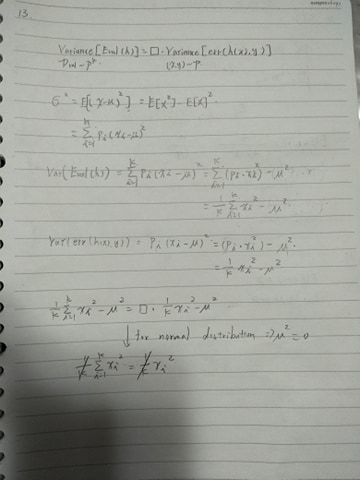 13.
Variance[E_val(h)] = □ · Variance[err(h(x), y)]
D_val ~ P^K (x,y) ~ P
σ² = E[(x-μ)²] = E[x²] - E[x]².
= Σ_{i=1}^{k} p_i (x_i - μ)²
Var(E_val(h)) = Σ_{i=1}^{K} p_i (x_i - μ)² = Σ_{i=1}^{K} (p_i · x_i)² - μ²
= 1/K Σ_{i=1}^{K} x_i² - μ².
Var(err(h(x), y)) = p_i (x_i - μ)² = (p_i · x_i²) - μ²
= 1/K x_i² - μ²
1/K Σ_{i=1}^{k} x_i² - μ² = □ · 1/K x_i² - μ²
↓ for normal distribution ⇒ μ² = 0
1/K Σ_{i=1}^{K} x_i² = 1/K x_i²